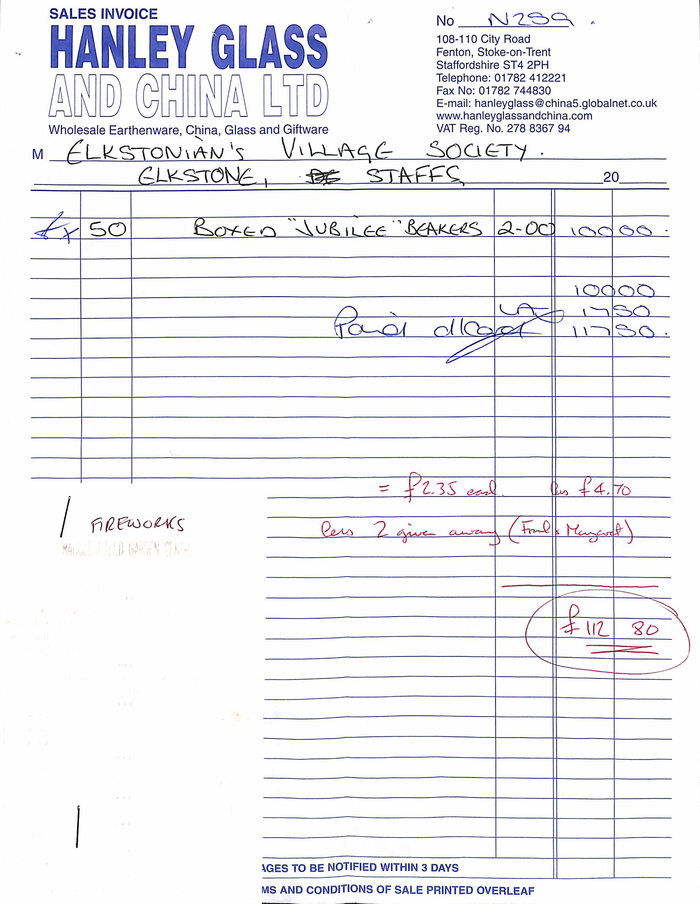 SALES INVOICE
HANLEY GLASS
AND CHINA LTD
Wholesale Earthenware, China, Glass and Giftware
No N289
108-110 City Road
Fenton, Stoke-on-Trent
Staffordshire ST4 2PH
Telephone: 01782 412221
Fax No: 01782 744830
E-mail: hanleyglass@china5.globalnet.co.uk
www.hanleyglassandchina.com
VAT Reg. No. 278 8367 94
M ELKSTONIAN'S VILLAGE SOCIETY.
ELKSTONE, STAFFS 20
50 BOXED "JUBILEE" BEAKERS 2-00 100 00
100 00
17 50
Paid 117 50
= £2.35 each less £4.70
FIREWORKS less 2 given away ( & Margaret)
GARDEN CENT
£112 80
AGES TO BE NOTIFIED WITHIN 3 DAYS
MS AND CONDITIONS OF SALE PRINTED OVERLEAF